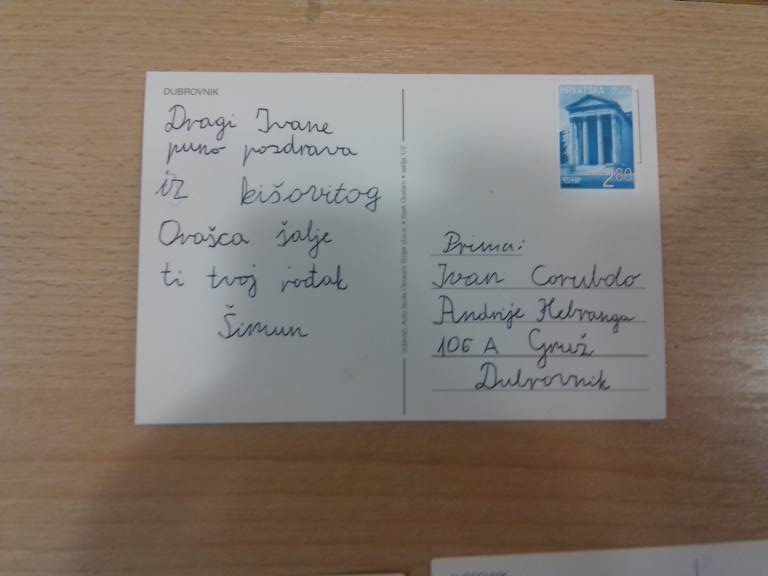 DUBROVNIK
Dragi Ivane
puno pozdrava
iz kišovitog
Orašca šalje
ti tvoj rođak
Šimun
HRVATSKA
2,80
Prima:
Ivan Corubdo
Andrije Hebranga
106 A Gruž
Dubrovnik
DUBROVNIK